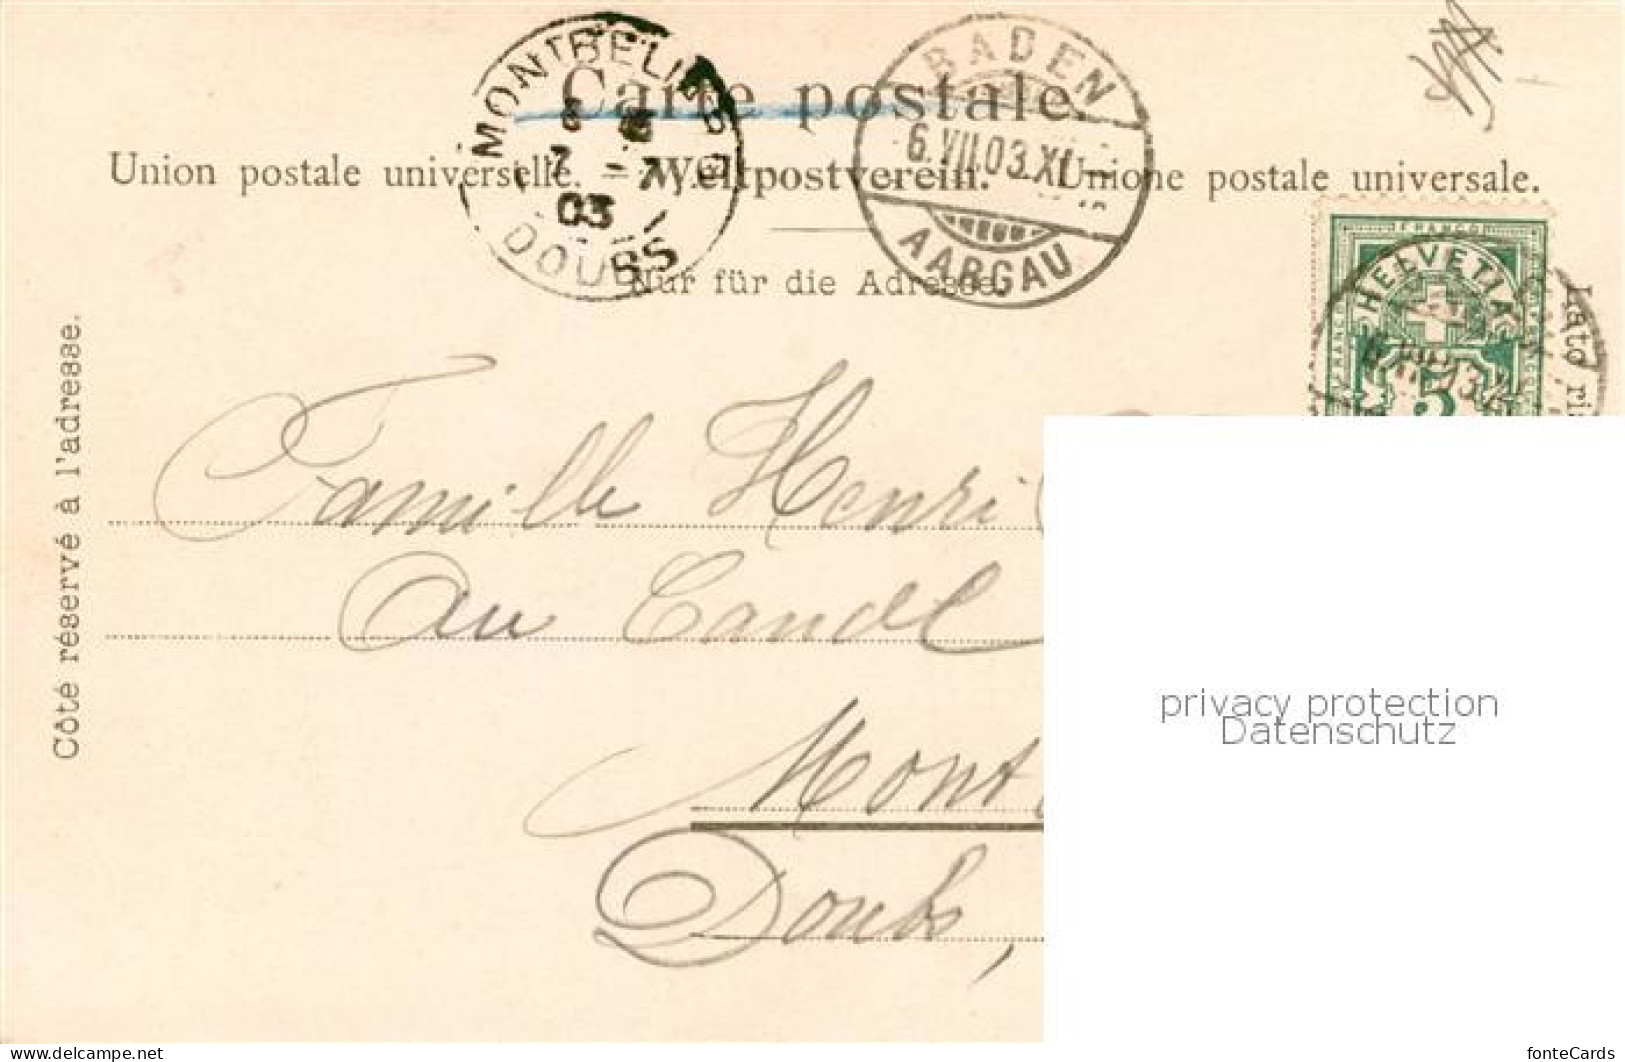 Carte postale.
Union postale universelle. – Weltpostverein. – Unione postale universale.
Nur für die Adresse.
Côté réservé à l'adresse.
MONTBELIARD
7 - 7
03
DOUBS
BADEN
6.VII.03.XI
AARGAU
FRANCO
HELVETIA
FRANCO
5
Lato ri
Famille Henri
Au Canal
Mont
Doubs,
privacy protection
Datenschutz
www.delcampe.net
fonteCards